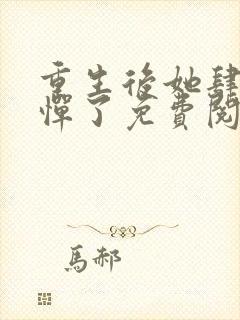 重生後她肆
憚了免費閱
馬郝